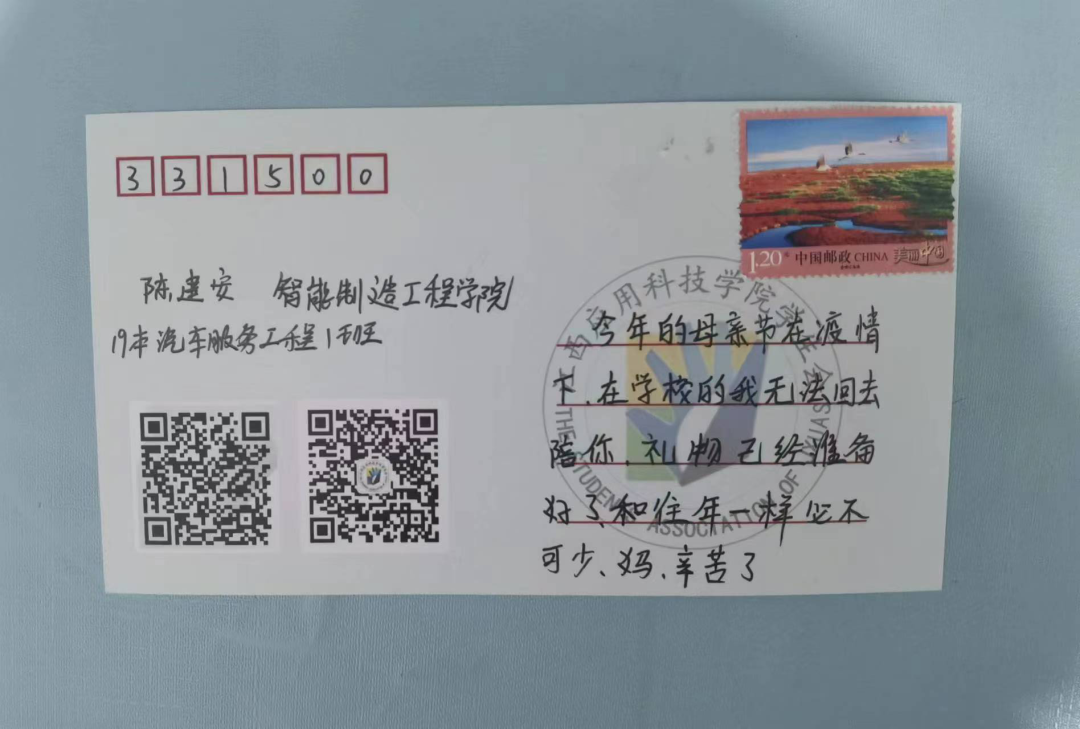 331500
1.20元 中国邮政 CHINA 美丽中国
陈建安 智能制造工程学院
19本汽车服务工程1班
西应用科技学院学生会
THE STUDENT ASSOCIATION OF
今年的母亲节在疫情
下、在学校的我无法回去
陪你、礼物已经准备
好了、和往年一样必不
可少、妈、辛苦了